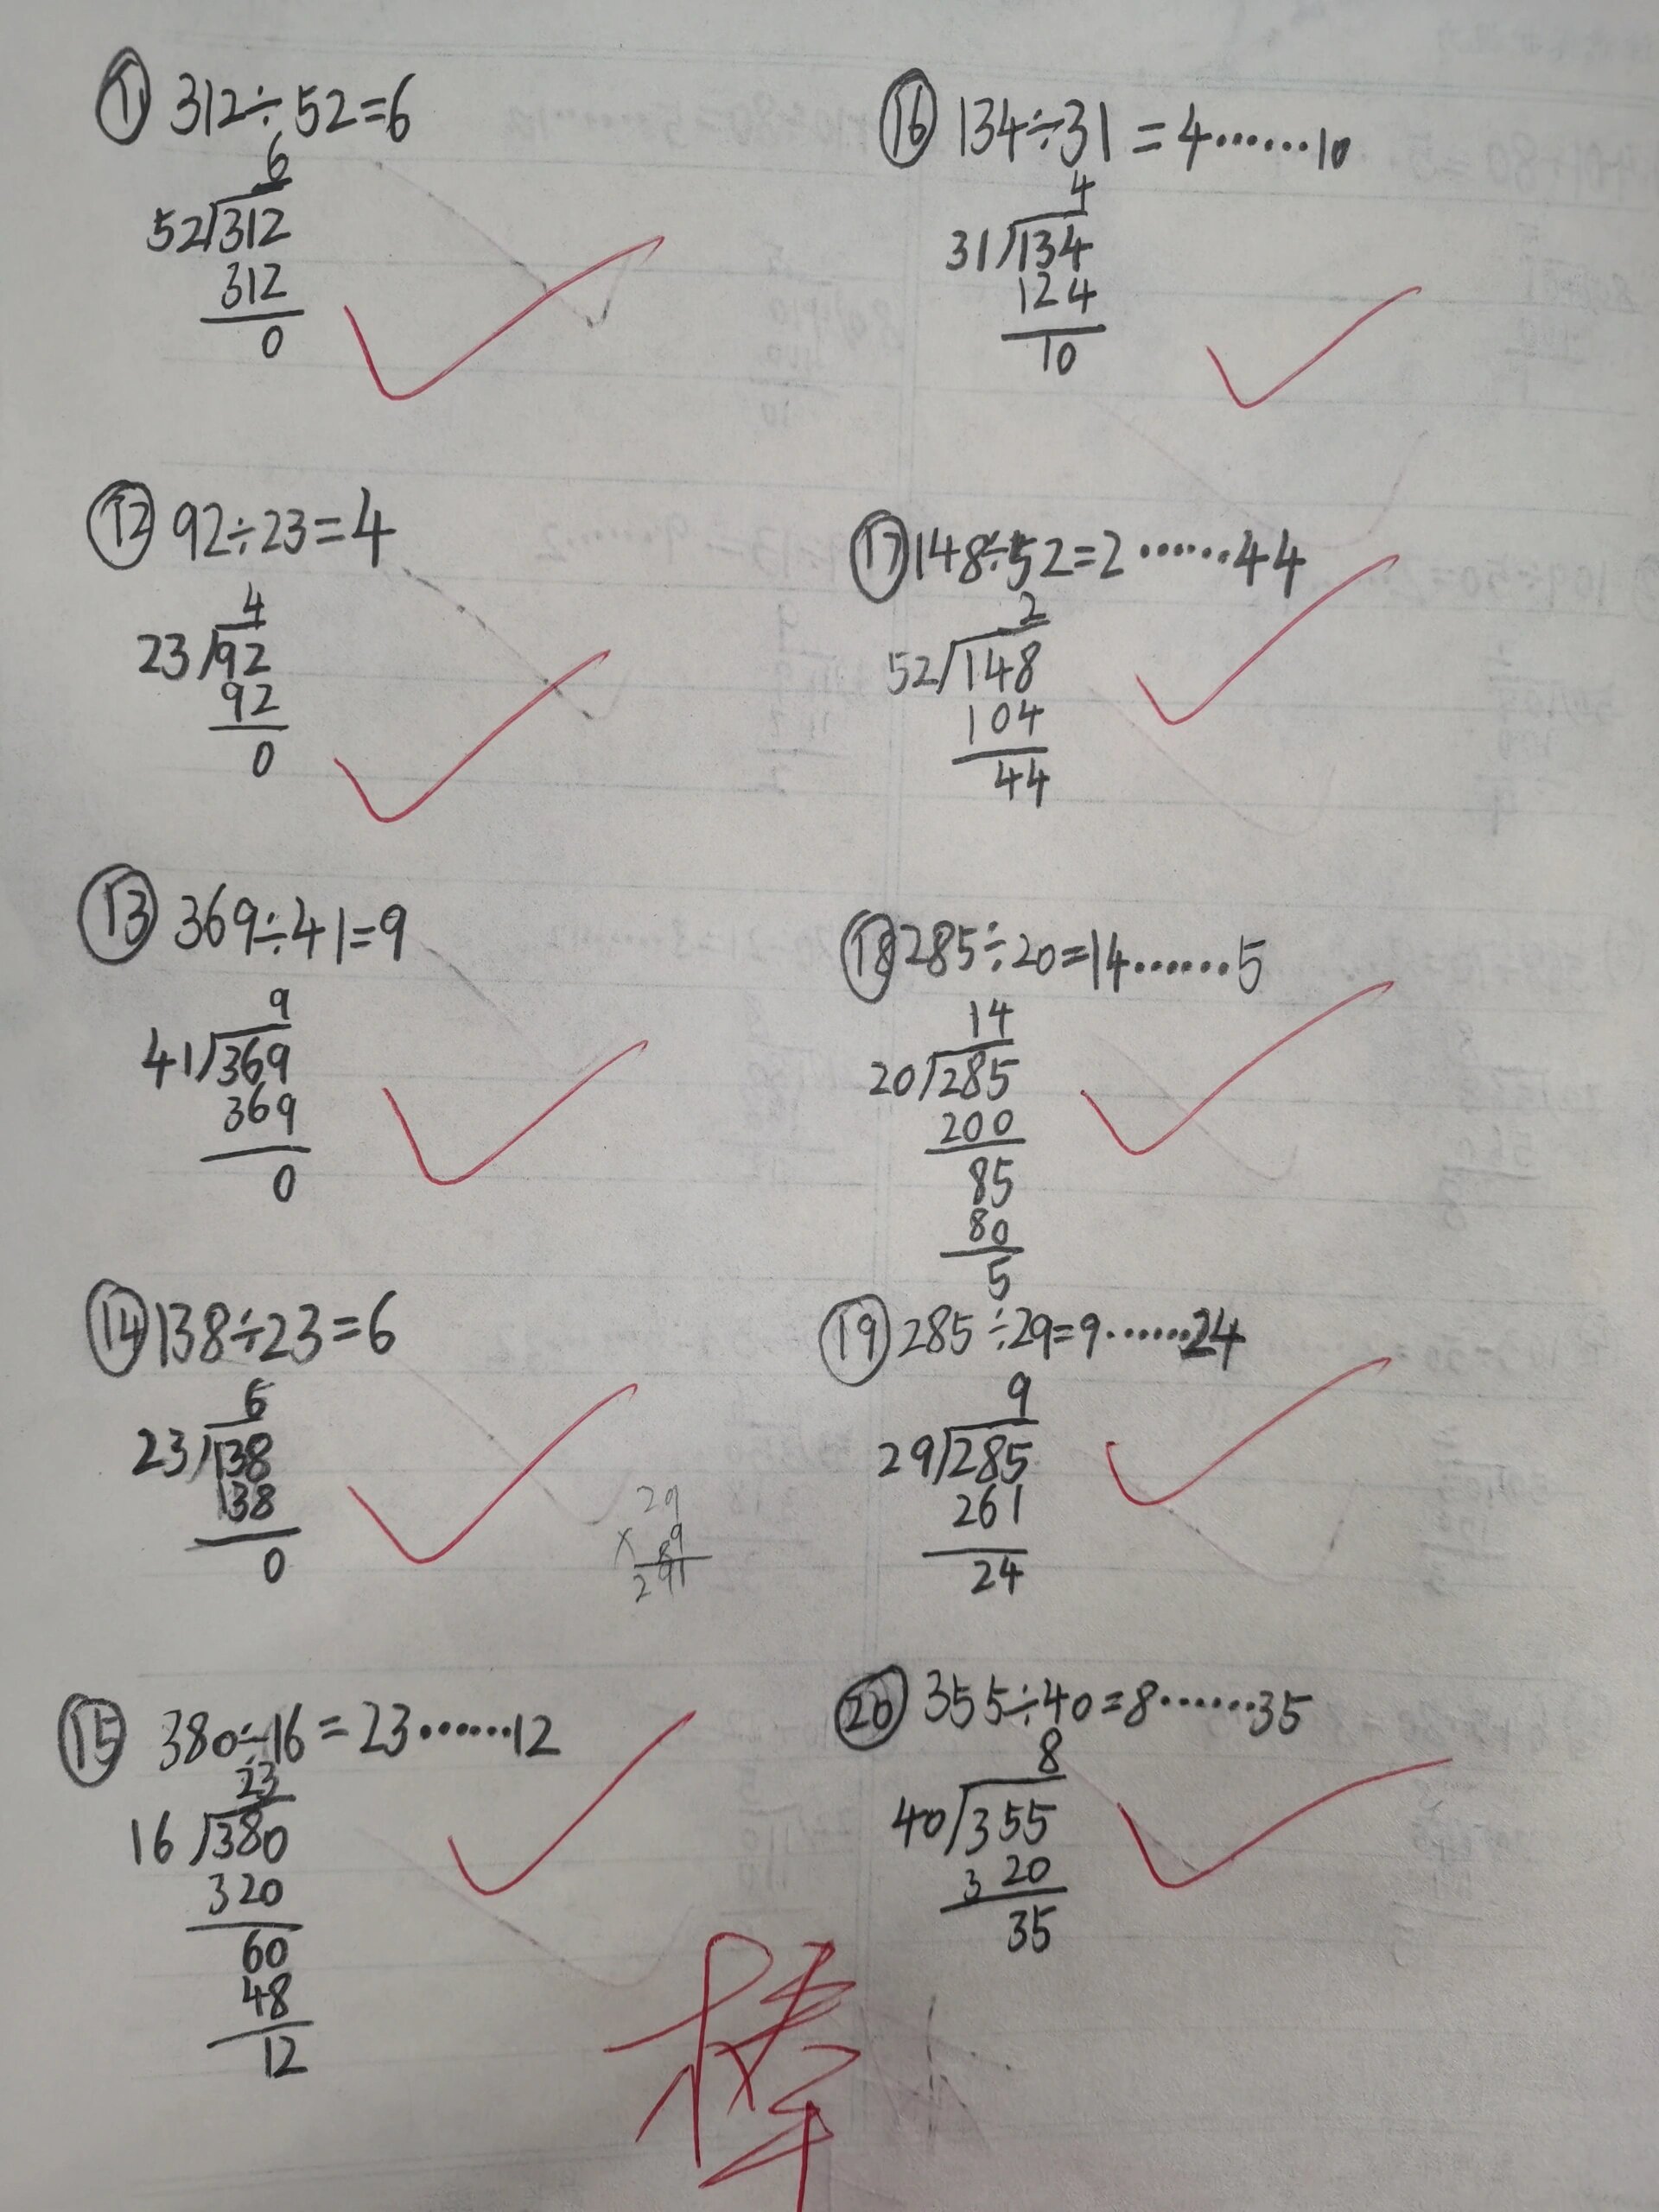 ⑪ 312÷52=6
6
52√312
312
0
⑫ 92÷23=4
4
23√92
92
0
⑬ 369÷41=9
9
41√369
369
0
⑭ 138÷23=6
6
23√138
138
0
29
×9
8
291
⑮ 380÷16=23……12
23
16√380
320
60
48
12
⑯ 134÷31=4……10
4
31√134
124
10
⑰ 148÷52=2……44
2
52√148
104
44
⑱ 285÷20=14……5
14
20√285
200
85
80
5
⑲ 285÷29=9……24
9
29√285
261
24
⑳ 355÷40=8……35
8
40√355
320
35
棒